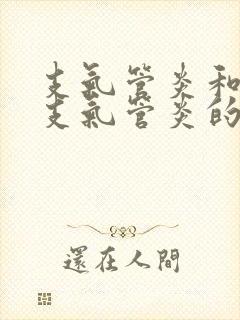 支氣管炎和
支氣管炎的
還在人間